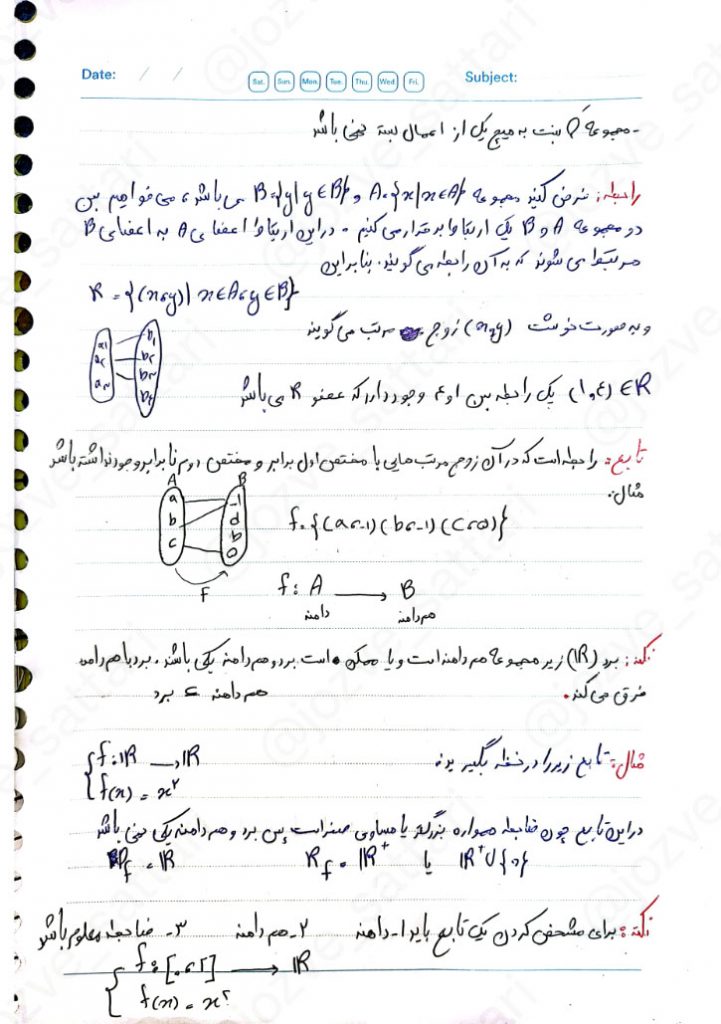 Date: / / Sat. Sun. Mon. Tue. Thu. Wed. Fri. Subject:
- مجموعه Q نسبت به هیچ یک از اعمال بسته نمی باشد
رابطه: فرض کنید مجموعه A={x|x∈A} و B={y|y∈B} می باشد، می خواهیم بین
دو مجموعه A و B یک ارتباط برقرار می کنیم. در این ارتباط اعضای A به اعضای B
مرتبط می شوند که به آن رابطه می گویند. بنابراین
R = {(x,y) | x∈A, y∈B}
و به صورت نوشت (x,y) زوج مرتب می گویند
a₁ a₂ a₃
b₁ b₂ b₃ b₄
(۱,۴) ∈ R یک رابطه بین ۱ و ۴ وجود دارد که عضو R می باشد
تابع: رابطه است که در آن زوج مرتب هایی با مختص اول برابر و مختص دوم نابرابر وجود نداشته باشد
مثال:
A B
a b c
-1 d b 0
F
f = {(a,-1)(b,-1)(c,0)}
f: A ⟶ B
دامنه هم دامنه
نکته: برد (R) زیر مجموعه هم دامنه است و یا ممکن است برد و هم دامنه یکی باشد. برد با هم دامنه
فرق می کند. هم دامنه ⊆ برد
مثال: تابع زیر را در نظر بگیرید
f: ℝ ⟶ ℝ
f(x) = x²
در این تابع چون ضابطه همواره بزرگتر یا مساوی صفر است پس برد و هم دامنه یکی نمی باشد
D_f = ℝ R_f = ℝ⁺ یا ℝ⁺∪{۰}
نکته: برای مشخص کردن یک تابع باید ۱- دامنه ۲- هم دامنه ۳- ضابطه معلوم باشد
f: [۰,۲] ⟶ ℝ
f(x) = x²
@jozve_sattari